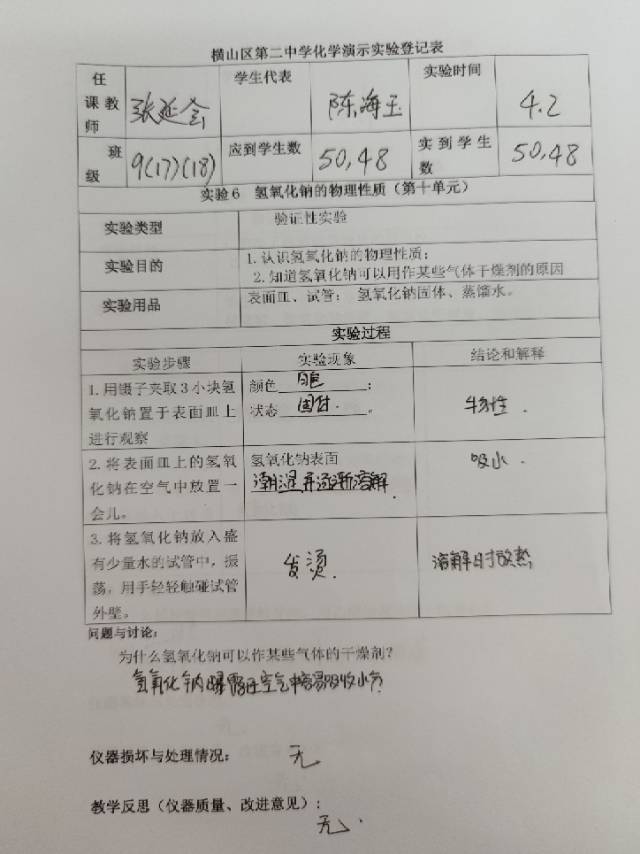 横山区第二中学化学演示实验登记表
任课教师 张延会 学生代表 陈海玉 实验时间 4.2
班级 9(17)(18) 应到学生数 50,48 实到学生数 50,48
实验6 氢氧化钠的物理性质（第十单元）
实验类型 验证性实验
实验目的 1.认识氢氧化钠的物理性质；
2.知道氢氧化钠可以用作某些气体干燥剂的原因
实验用品 表面皿、试管； 氢氧化钠固体、蒸馏水。
实验过程
实验步骤 实验现象 结论和解释
1.用镊子夹取3小块氢 颜色 白色 ；
氧化钠置于表面皿上 状态 固体. 。 物性.
进行观察
2.将表面皿上的氢氧 氢氧化钠表面 吸水.
化钠在空气中放置一 潮湿并逐渐溶解.
会儿。
3.将氢氧化钠放入盛
有少量水的试管中，振 发烫. 溶解时放热;
荡，用手轻轻触碰试管
外壁。
问题与讨论：
为什么氢氧化钠可以作某些气体的干燥剂？
氢氧化钠曝露在空气中容易吸收水分
仪器损坏与处理情况： 无
教学反思（仪器质量、改进意见）：
无.